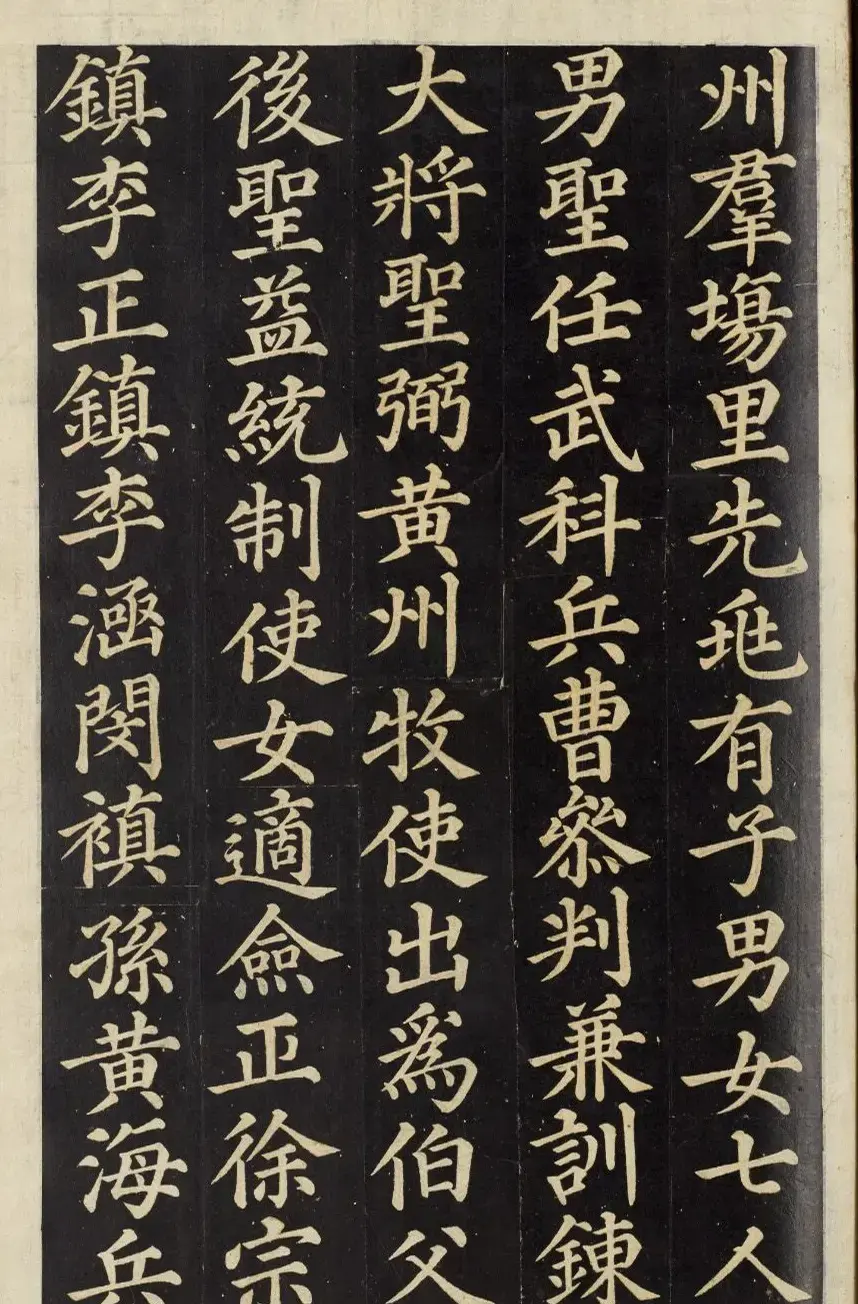 州羣塲里先兆有子男女七人
男聖任武科兵曹叅判兼訓鍊
大將聖弼黄州牧使出爲伯父
後聖益統制使女適僉正徐宗
鎮李正鎮李涵閔禛孫黄海兵